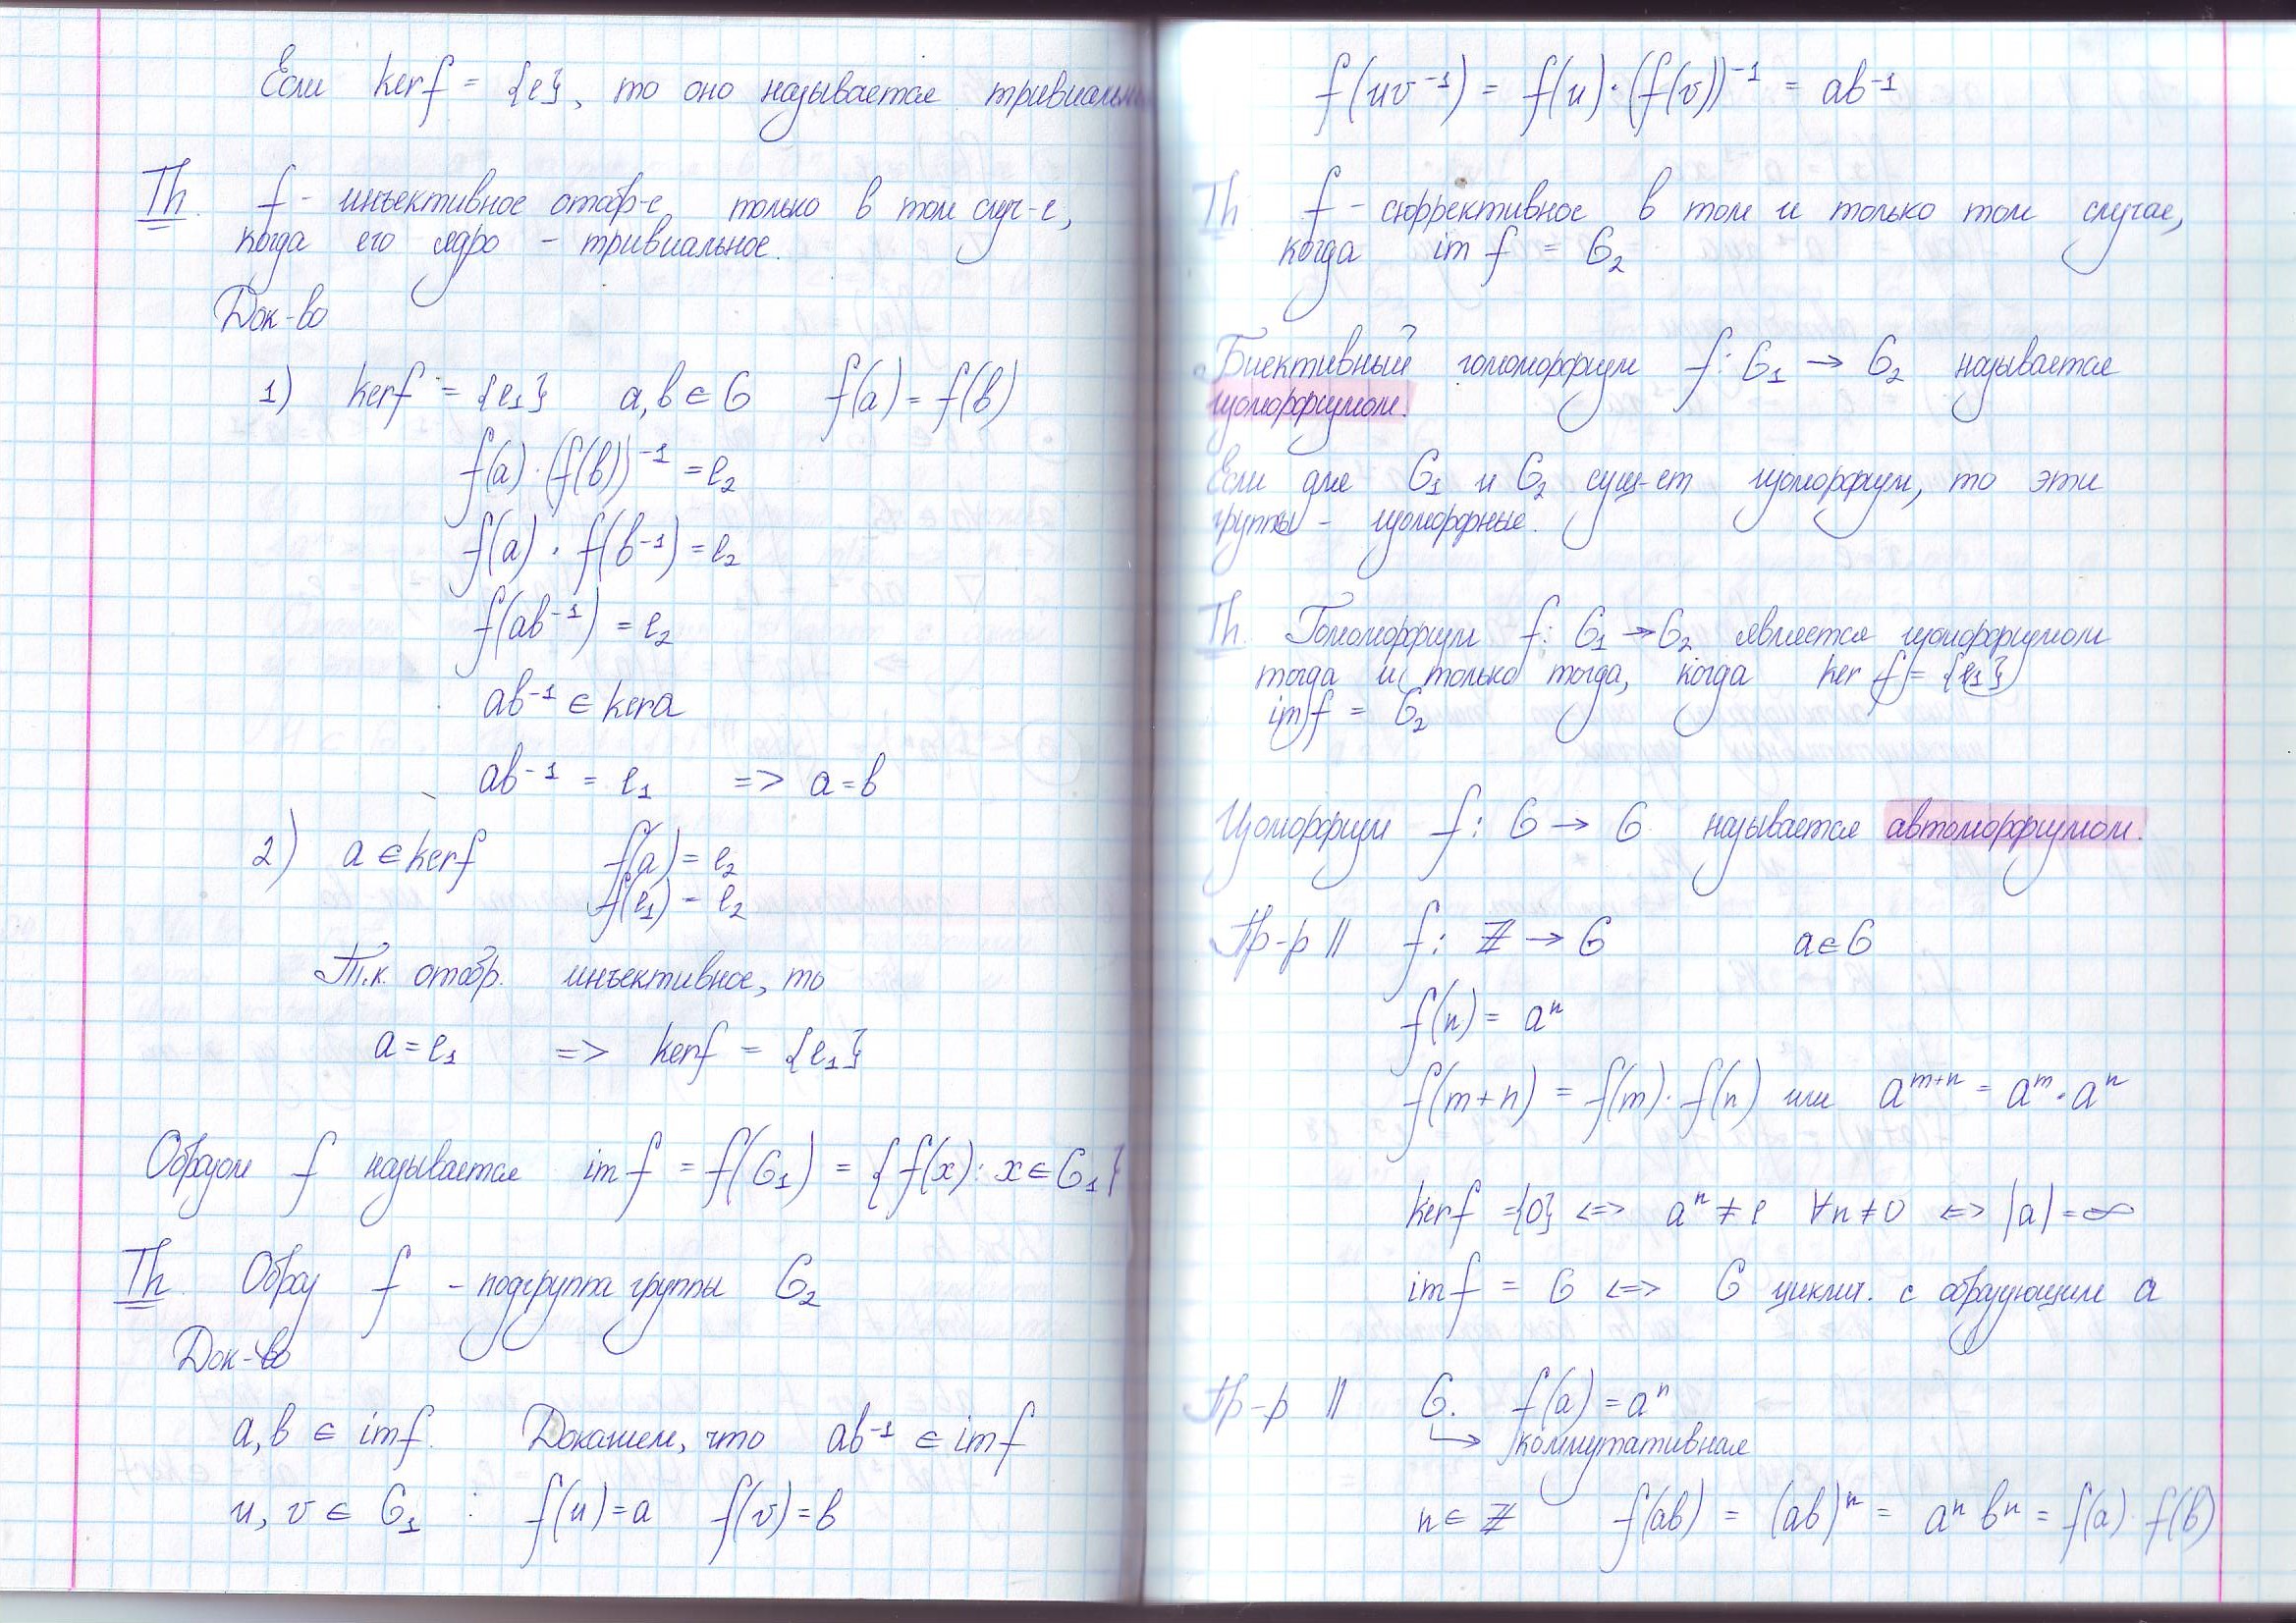 Если ker f = {e}, то оно называется тривиальн
Th. f - инъективное отобр-е только в том случ-е,
когда его ядро - тривиальное.
Док-во
1) ker f = {e₁} a, b ∈ G f(a) = f(b)
f(a) · (f(b))⁻¹ = e₂
f(a) · f(b⁻¹) = e₂
f(ab⁻¹) = e₂
ab⁻¹ ∈ ker a
ab⁻¹ = e₁ => a = b
2) a ∈ ker f f(a) = e₂
f(e₁) = e₂
Т.к. отобр. инъективное, то
a = e₁ => ker f = {e₁}
Образом f называется im f = f(G₁) = {f(x): x ∈ G₁}
Th. Образ f - подгруппа группы G₂
Док-во
a, b ∈ im f. Докажем, что ab⁻¹ ∈ im f
u, v ∈ G₁ : f(u) = a f(v) = b
f(uv⁻¹) = f(u) · (f(v))⁻¹ = ab⁻¹
Th f - сюррективное в том и только том случае,
когда im f = G₂
Биективный гомоморфизм f: G₁ → G₂ называется
изоморфизмом.
Если для G₁ и G₂ сущ-ет изоморфизм, то эти
группы - изоморфные.
Th. Гомоморфизм f: G₁ → G₂ является изоморфизмом
тогда и только тогда, когда ker f = {e₁}
im f = G₂
Изоморфизм f: G → G называется автоморфизмом.
Пр-р || f: ℤ → G a ∈ G
f(n) = aⁿ
f(m+n) = f(m) · f(n) или aᵐ⁺ⁿ = aᵐ · aⁿ
ker f = {0} <=> aⁿ ≠ e ∀n ≠ 0 <=> |a| = ∞
im f = G <=> G циклич. с образующим a
Пр-р || G. f(a) = aⁿ
↳ коммутативная
n ∈ ℤ f(ab) = (ab)ⁿ = aⁿ bⁿ = f(a) · f(b)